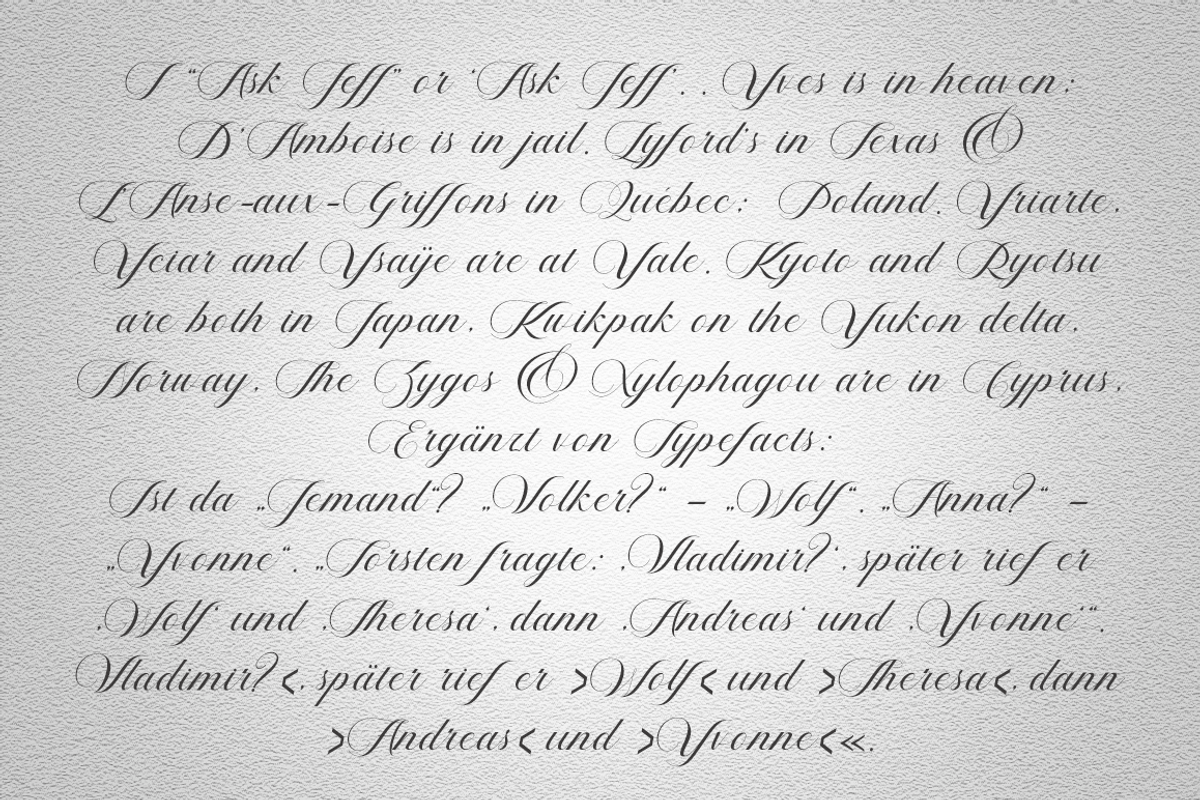 I “Ask Jeff” or ‘Ask Jeff’. . Yves is in heaven:
D’Amboise is in jail. Lyford’s in Texas &
L’Anse-aux-Griffons in Québec: Poland. Yriarte.
Yciar and Ysaÿe are at Yale. Kyoto and Ryotsu
are both in Japan. Kwikpak on the Yukon delta.
Norway. The Zygos & Xylophagou are in Cyprus.
Ergänzt von Typefacts:
Ist da „Jemand“? „Volker?“ – „Wolf“. „Anna?“ –
„Yvonne“. „Torsten fragte: ‚Vladimir?‘. später rief er
‚Wolf‘ und ‚Theresa‘. dann ‚Andreas‘ und ‚Yvonne‘“.
Vladimir?‹. später rief er ›Wolf‹ und ›Theresa‹. dann
›Andreas‹ und ›Yvonne‹«.